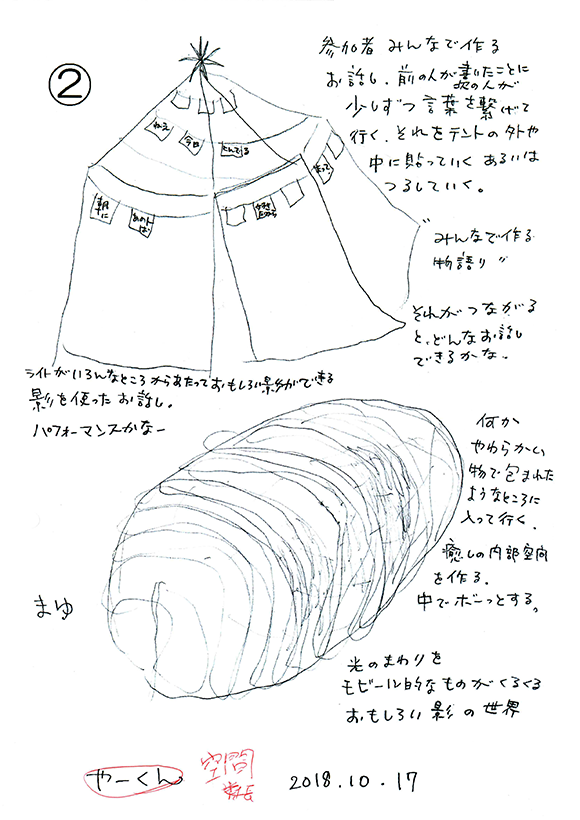 ②
参加者 みんなで作る
お話し、前の人が書いたことに
次の人が
少しずつ言葉を繋げて
行く。それをテントの外や
中に貼っていく あるいは
つるしていく。
ねえ
今日
とんでる
朝に
あの人は
笑って
みんなで作る
物語り〃
それがつながる
と、どんなお話し
できるかな。
ライトがいろんなところからあたっておもしろい影ができる
影を使ったお話し。
パフォーマンスかなー
何か
やわらかい
物で包まれた
ようなところに
入って行く。
癒しの内部空間
を作る。
中でボーっとする。
まゆ
光のまわりを
モビール的なものがくるくる
おもしろい影の世界
やーくん
空間
2018.10.17